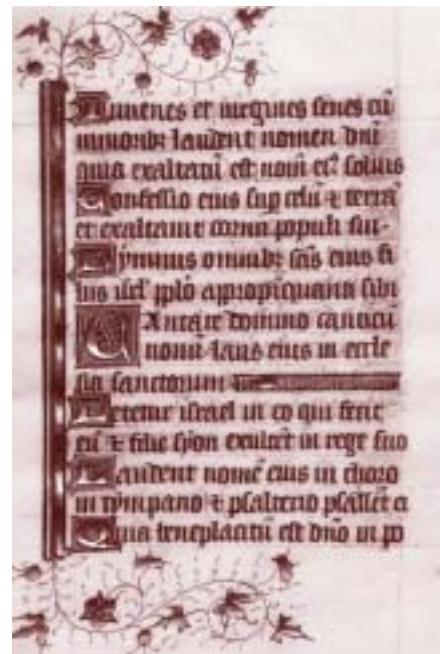 Iuuenes et uirgines senes cū
iunioribꝫ laudent nomen dn̄i
quia exaltatū est nom̄ eiꝰ solius
Confessio eius sup celū ⁊ terrā
et exaltauit cornu populi sui
Hymnus omnibꝫ sc̄is eius fi
liis isrl̄ pplō apropīquanti sibi
Cantate domino canticū
nouū laus eius in eccle
sia sanctorum
Letetur israel in eo qui fecit
eū ⁊ filie syon exultēt in rege suo
Laudent nomē eius in choro
in tympano ⁊ psalterio psallēt ei
Quia beneplacitū est dn̄o in po